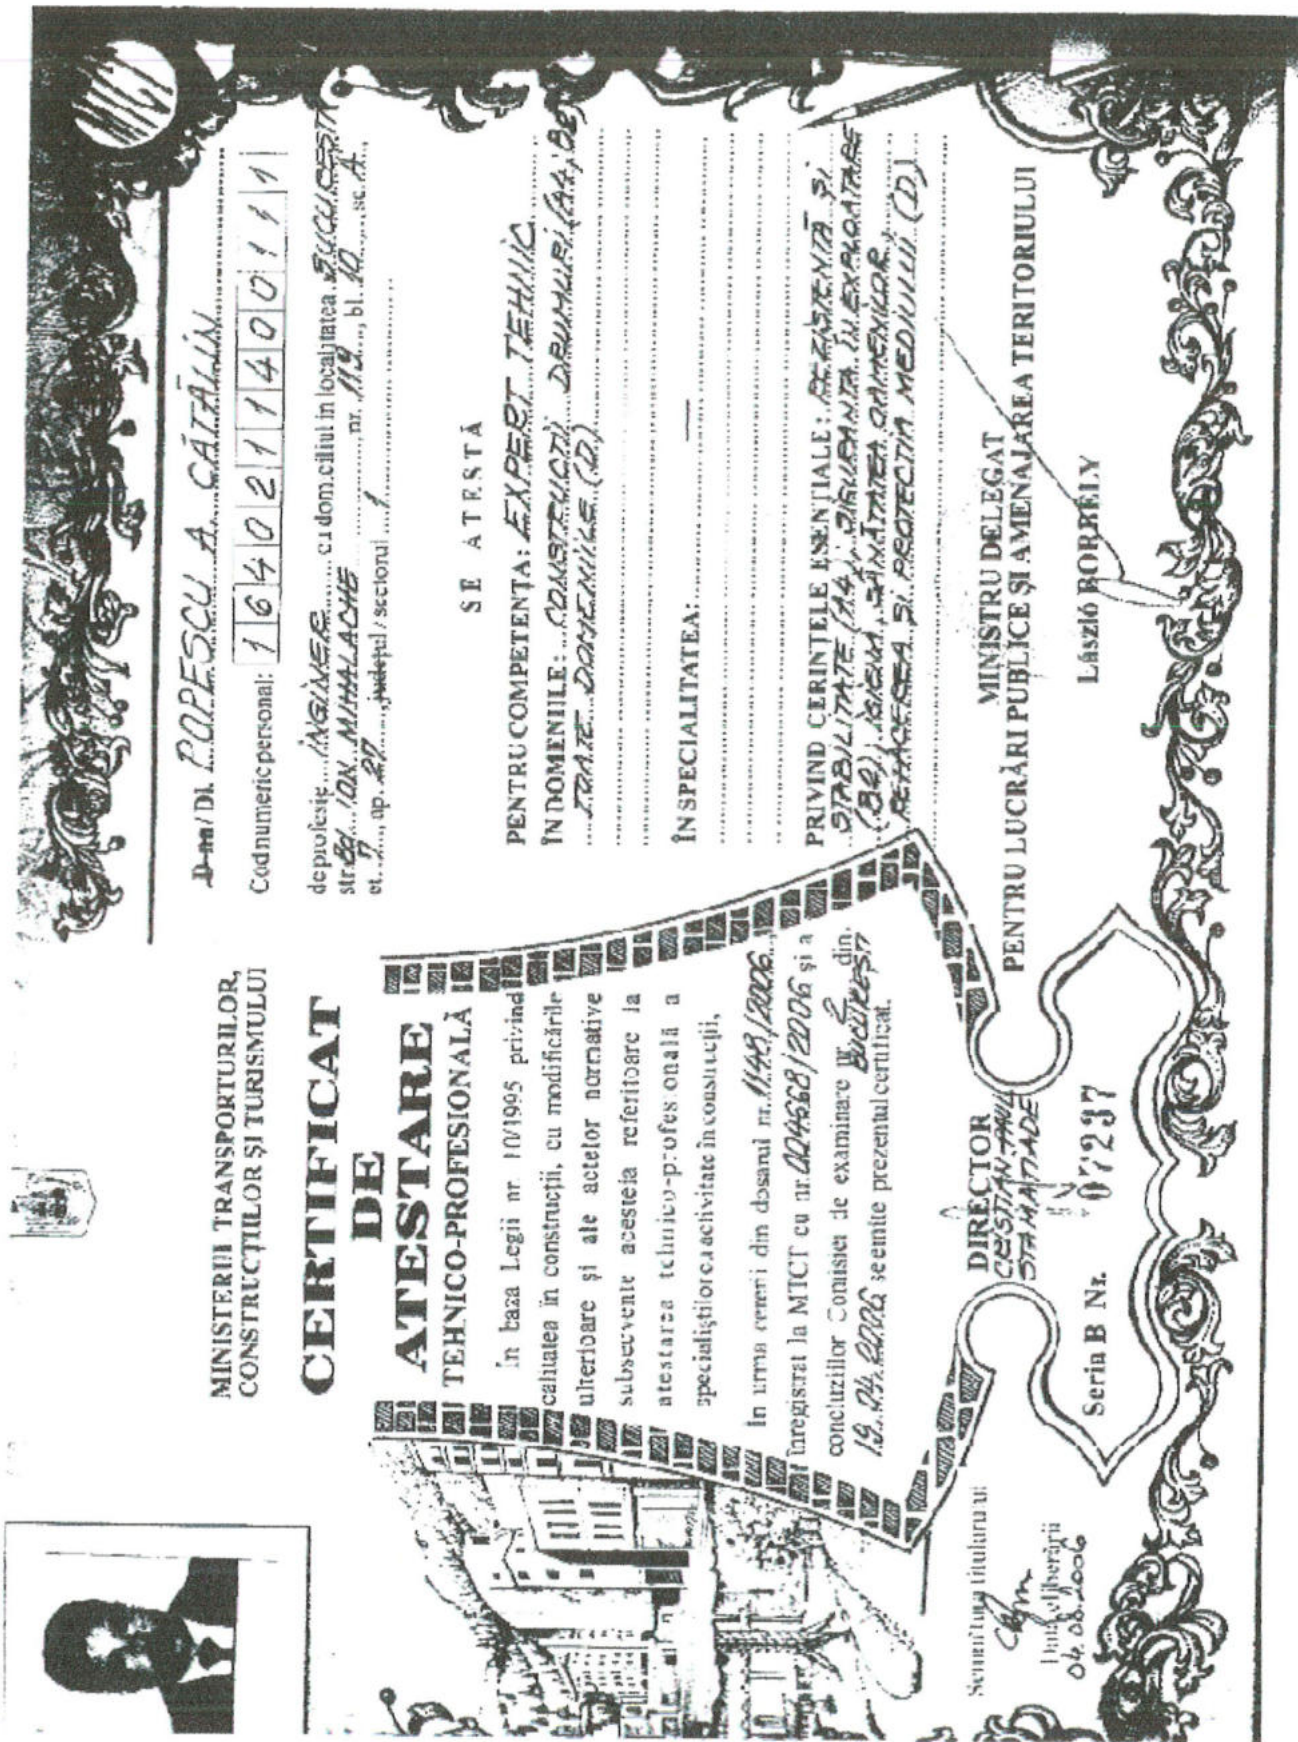 MINISTERUL TRANSPORTURILOR,
CONSTRUCȚIILOR ȘI TURISMULUI
CERTIFICAT
DE
ATESTARE
TEHNICO-PROFESIONALĂ
În baza Legii nr. 10/1995 privind
calitatea în construcții, cu modificările
ulterioare și ale actelor normative
subsecvente acesteia referitoare la
atestarea tehnico-profesională a
specialiștilor cu activitate în construcții,
În urma cererii din dosarul nr. 1148/2006,
înregistrat la MTCT cu nr. 024668/2006 și a
concluziilor Comisiei de examinare nr. 2 din
BUCUREȘTI
19.04.2006 se emite prezentul certificat.
DIRECTOR
CRISTIAN PAUL
STAMATIADE
Seria B Nr. 07237
Semnătura titularului
Data eliberării
04.08.2006
D-na/Dl. POPESCU A. CĂTĂLIN
Cod numeric personal: 1 6 4 0 2 1 1 4 0 0 1 1 1
de profesie INGINER cu domiciliul în localitatea BUCUREȘTI
str. Bd. ION MIHALACHE nr. 119, bl. 10, sc. A,
et. 7, ap. 27, județul / sectorul 1
SE ATESTĂ
PENTRU COMPETENȚA: EXPERT TEHNIC
ÎN DOMENIILE: CONSTRUCȚII DRUMURI (A4, B2)
TOATE DOMENIILE (D)
ÎN SPECIALITATEA: —
PRIVIND CERINȚELE ESENȚIALE: REZISTENȚĂ ȘI
STABILITATE (A4), SIGURANȚA ÎN EXPLOATARE
IGIENA, SĂNĂTATEA OAMENILOR,
REFACEREA ȘI PROTECȚIA MEDIULUI (D)
MINISTRU DELEGAT
PENTRU LUCRĂRI PUBLICE ȘI AMENAJAREA TERITORIULUI
László BORBELY